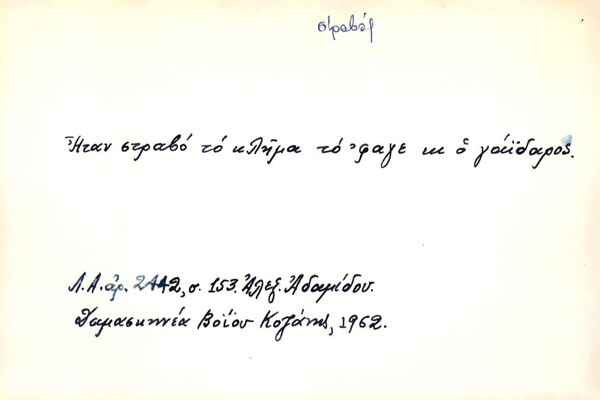 στραβός
Ἦταν στραβό τό κλῆμα τό ᾿φαγε κι ὁ γάϊδαρος.
Λ.Α. ἀρ. 2442, σ. 153. Ἀλεξ. Ἀδαμίδου.
Δαμασκηνέα Βοΐου Κοζάνης, 1962.